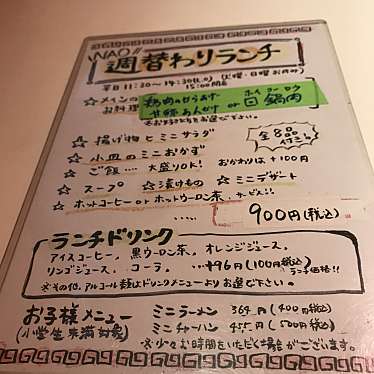 WAO!!
週替わりランチ
平日 11:30〜14:30(L.O) (土曜・日曜 お休み)
15:00閉店
☆ メインの
お料理
鶏肉のから揚げ
甘酢あんかけ or 回鍋肉
ホイコーロウ
お好きな方をどうぞ
☆ 揚げ物とミニサラダ
全8品付
☆ 小皿のミニおかず
☆ ご飯‥‥大盛りOK! おかわりは+100円
☆ スープ ☆ 漬けもの ☆ ミニデザート
☆ ホットコーヒー or ホットウーロン茶
‥‥‥ 900円(税込)
ランチドリンク
アイスコーヒー、黒ウーロン茶、オレンジジュース、
リンゴジュース、コーラ、‥‥+96円(100円税込)
ランチ価格!!
※その他、アルコール類はドリンクメニューよりお選び下さい。
お子様メニュー
(小学生未満対象)
ミニラーメン 364円(400円税込)
ミニチャーハン 455円(500円税込)
※少々お時間をいただく場合がございます。